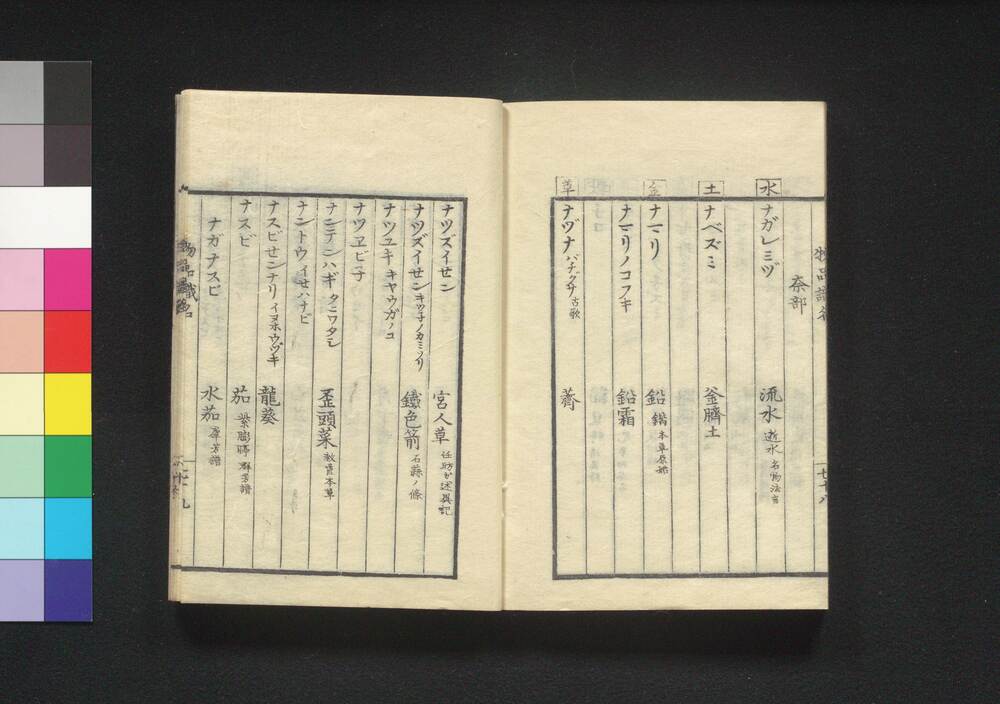 物品識名
奈部
水
ナガレミヅ 流水 逝水 名物法言
土
ナベズミ 釜臍土
金
ナマリ 鉛 鑞 本草原始
ナマリノコフキ 鉛霜
草
ナヅナ バチグサ 古歌 薺
ナツズイせン 宮人草 任昉ガ述異記
ナツズイせン キツ子ノカミソリ 鐵色箭 石蒜ノ條
ナツユキ キヤウガノコ
ナツヱビ子
ナンテンハギ タニワタシ 歪頭菜 救荒本草
ナントウ イせハナビ
ナスビせンナリ イヌホウヅキ 龍葵
ナスビ 茄 紫膨脝 群芳譜
ナガナスビ 水茄 群芳譜